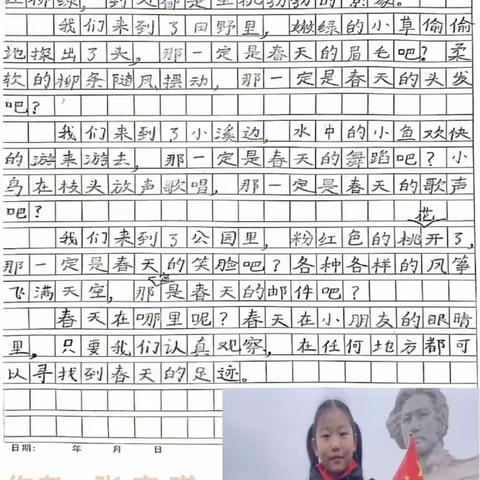 红柳绿，到处都是生机勃勃的景象。
我们来到了田野里，嫩绿的小草偷偷
地探出了头，那一定是春天的眉毛吧？柔
软的柳条随风摆动，那一定是春天的头发
吧？
我们来到了小溪边，水中的小鱼欢快
的游来游去，那一定是春天的舞蹈吧？小
鸟在枝头放声歌唱，那一定是春天的歌声
吧？
我们来到了公园里，粉红色的桃花开了，
那一定是春天的笑脸吧？各种各样的风筝
飞满天空，那一定是春天的邮件吧？
春天在哪里呢？春天在小朋友的眼睛
里，只要我们认真观察，在任何地方都可
以寻找到春天的足迹。
日期： 年 月 日